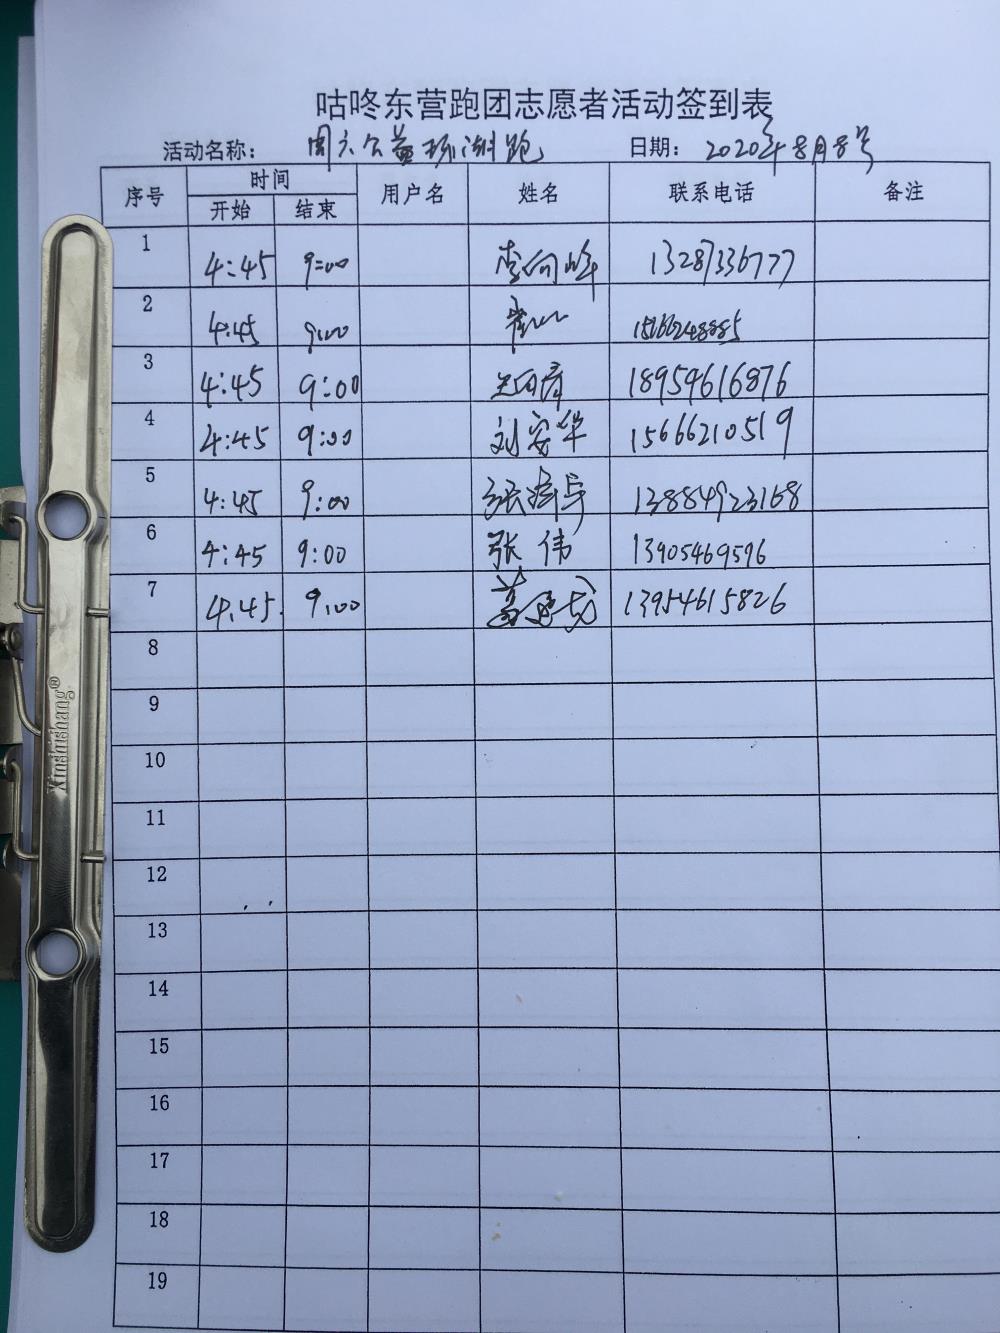 咕咚东营跑团志愿者活动签到表
活动名称： 周六公益环湖跑 日期： 2020年8月8号
序号 时间 用户名 姓名 联系电话 备注
开始 结束
1 4:45 9:00 李向峰 13287336777
2 4:45 9:00 15166248885
3 4:45 9:00 18954616876
4 4:45 9:00 刘安华 15666210519
5 4:45 9:00 张 13884923168
6 4:45 9:00 张伟 13905469596
7 4:45 9:00 13954615826
8
9
10
11
12
13
14
15
16
17
18
19
Xinshishang®